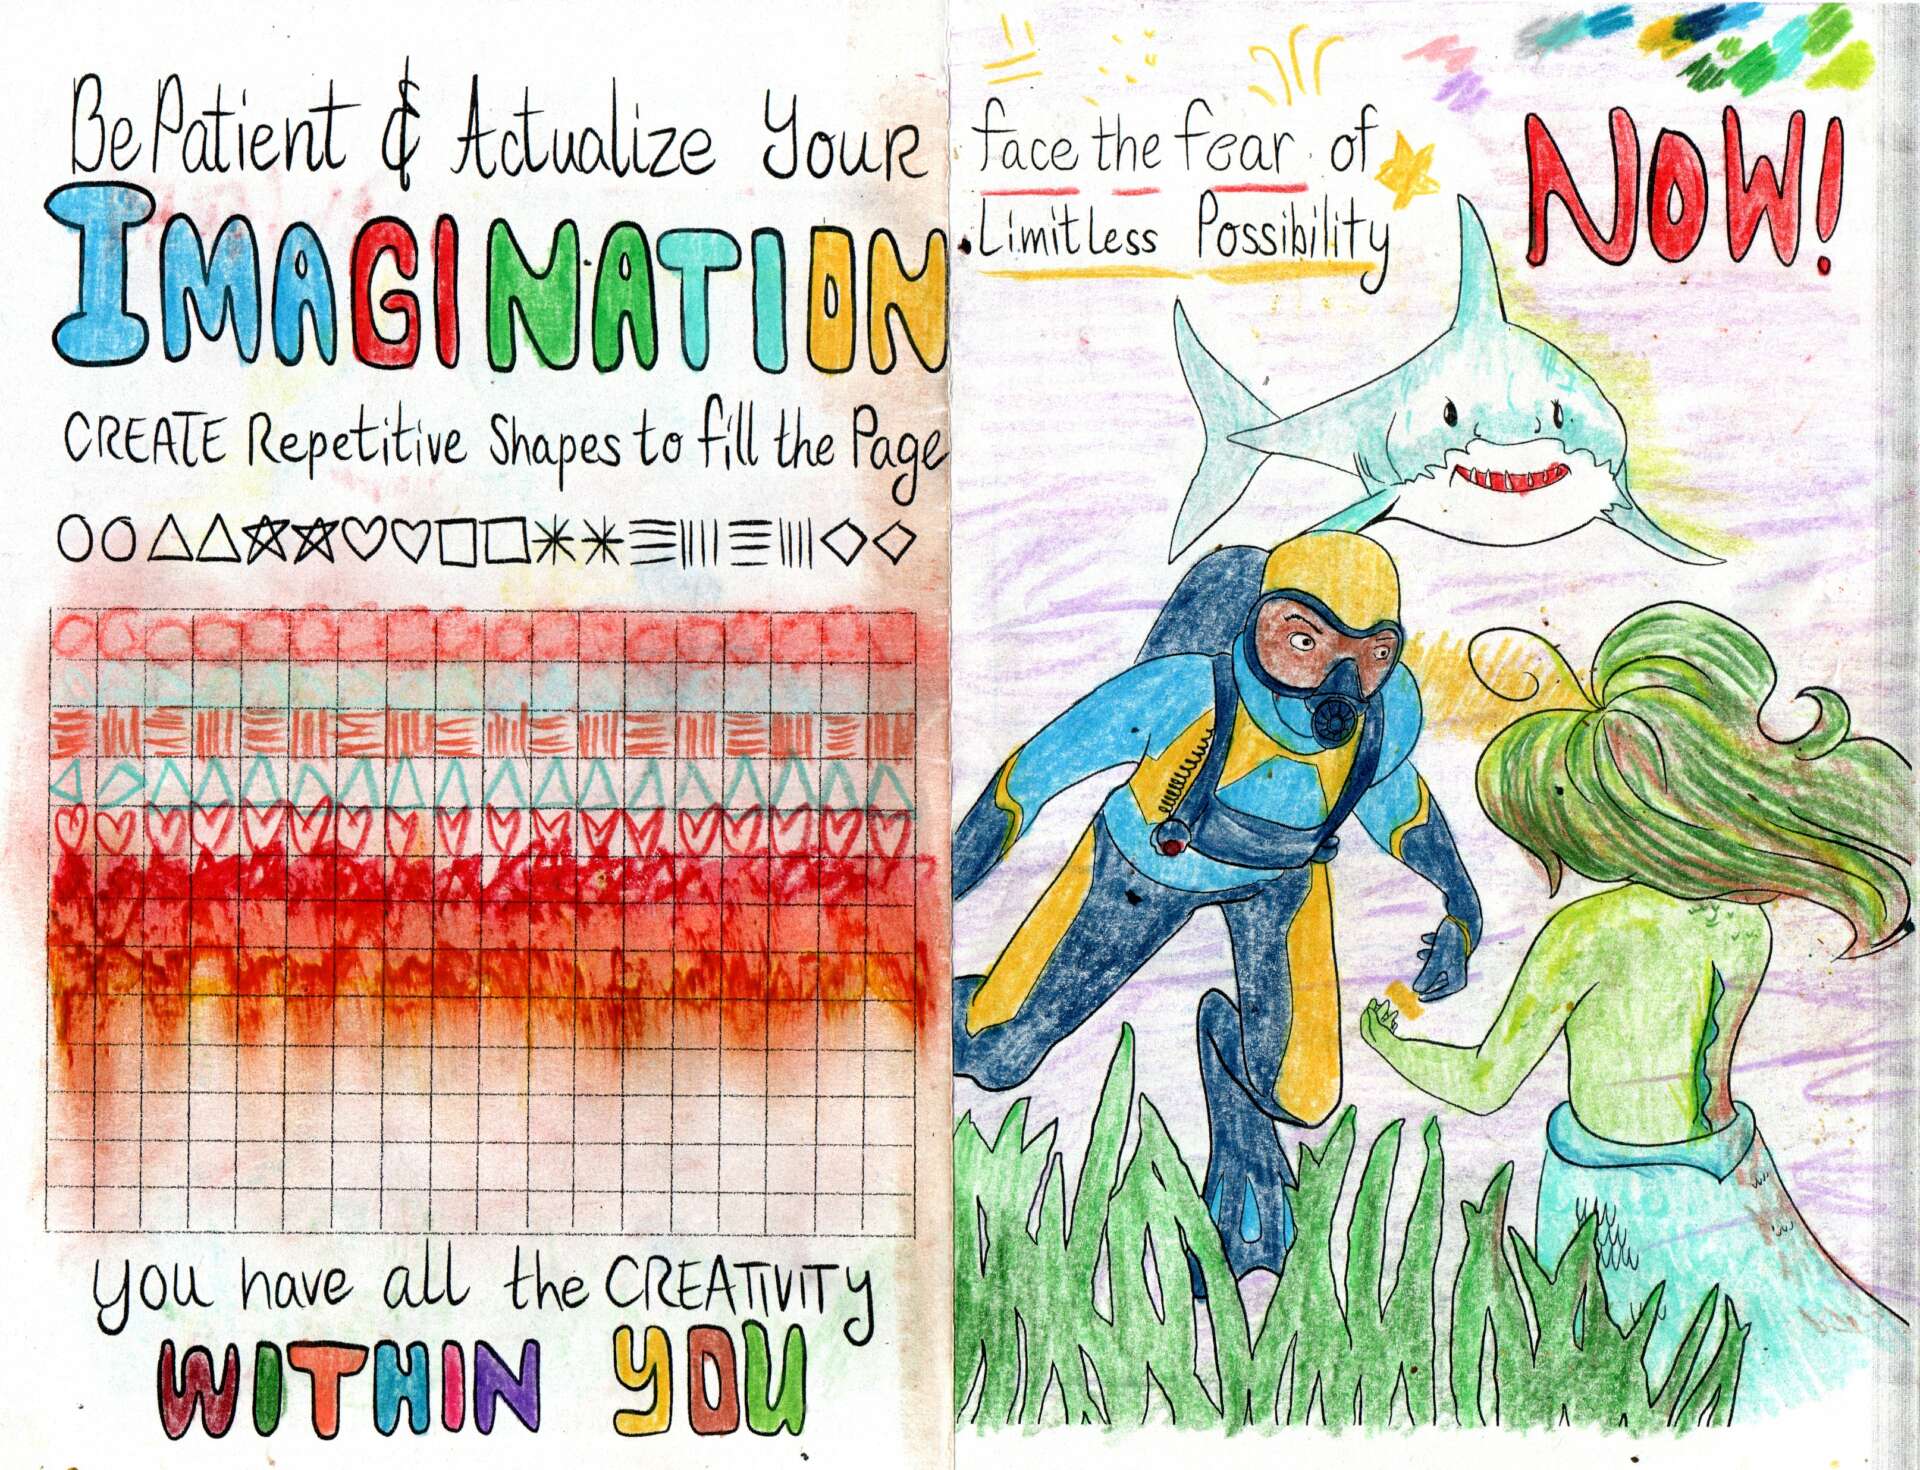 Be Patient & Actualize Your
IMAGINATION
CREATE Repetitive Shapes to fill the Page
you have all the CREATIVITY
WITHIN YOU
face the fear of
Limitless Possibility
NOW!